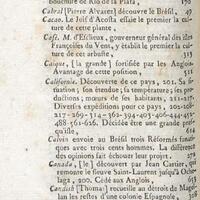 bouchure de Rio de la Plata, 170
Cabral [Pierre Alvarez] découvre le Brésil, 49
Cacao. Le Juif d'Acosta essaie le premier la cul-
ture de cette plante,
Café. M. d'Esclieux, gouverneur général des isles
Françoises du Vent, y établit le premier la cultu-
re de cet arbuste, 313
Caique, [la grande] fortifiée par les Anglois.
Avantage de cette position, 511
Californie. Découverte de ce pays, 201. Sa si-
tuation; son étendue; sa température; ses pro-
ductions; mœurs de ses habitans, 202-205-211-
217. Diverses expéditions pour ce pays, 201-206-
217-269-314-
488-561-626. Décidée être une grande pres-
qu'isle, 614
Calvin envoie au Brésil trois Réformés fran-
çois avec trois cents hommes. La différence
des opinions fait échouer leur projet, 271
Canada, [le] découvert par Jean Cartier, qui
remonte le fleuve Saint-Laurent jusqu'à Oche-
laga, 200. Cédé aux Anglois,
Candish [Thomas] recueille au détroit de Magel-
lan les restes d'une colonie Espagnole,